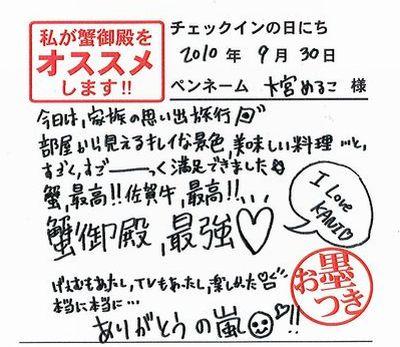 私が蟹御殿を
オススメ
します!!
チェックインの日にち
2010 年 9 月 30 日
ペンネーム 大宮めるこ 様
今日は,家族の思い出旅行
部屋から見えるキレイな景色,美味しい料理…と,
すごく,すごーーーっく満足できました
蟹,最高!!佐賀牛,最高!!...
蟹御殿,最強♡
I Love
KANI♡
げぇむもあたし,TVもあたし,楽しかた♡
本当に本当に…
ありがとうの嵐☺!!
お墨つき